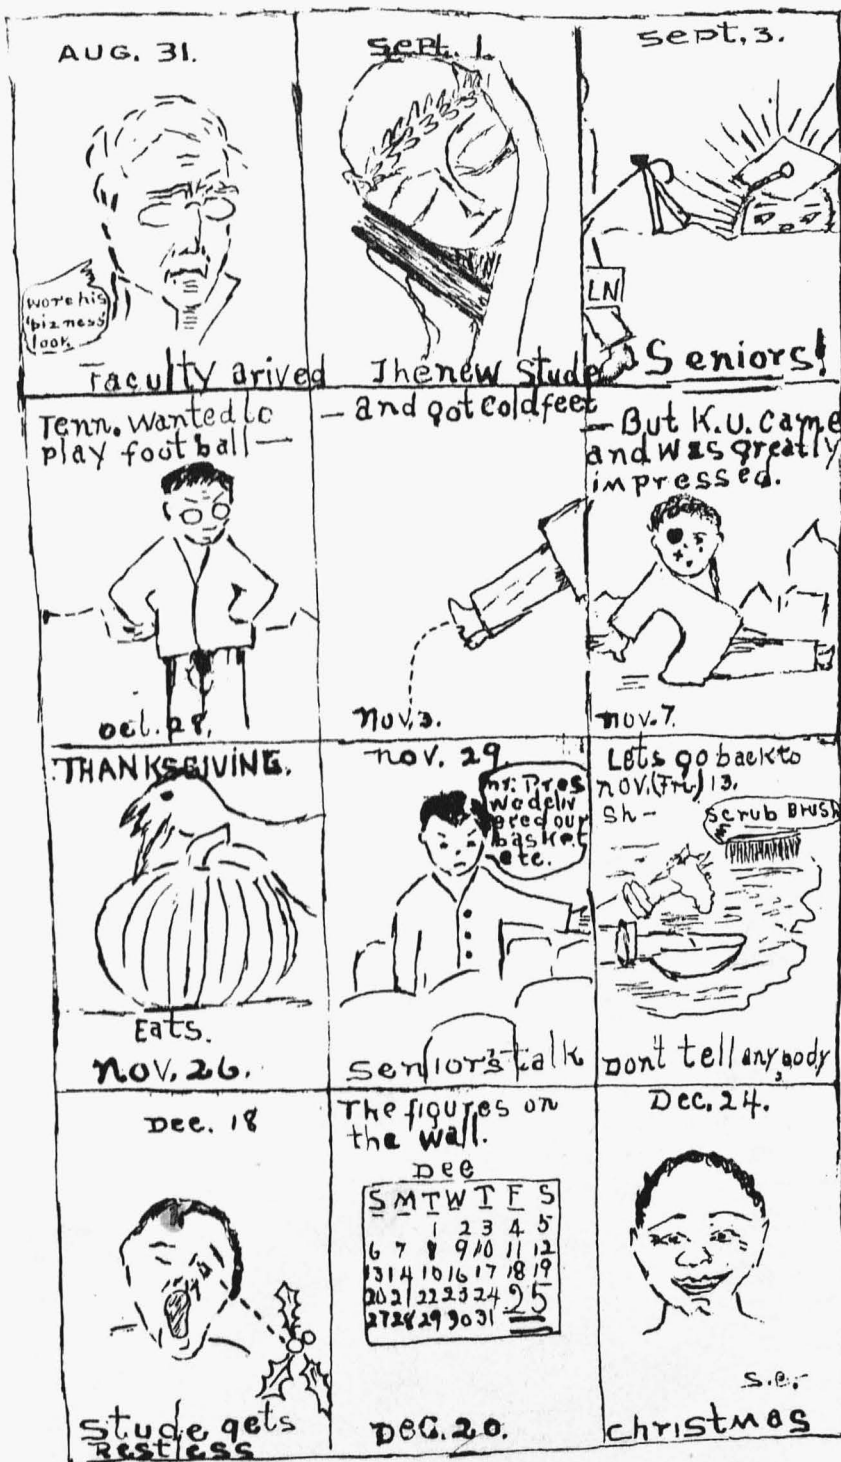 AUG. 31.
Wore his
'bizness'
look
Faculty arived
Sept. 1.
The new Stude
Sept, 3.
LN
Seniors!
Tenn. Wanted to
play foot ball —
Oct. 28.
— and got cold feet
Nov. 3.
— But K.U. Came
and was greatly
impressed.
Nov. 7.
THANKSGIVING.
Eats.
Nov. 26.
Nov. 29
Mr. Pres
we deliv
ered our
basket
etc.
Seniors talk
Lets go back to
Nov. (Fri.) 13.
Sh—
Scrub BRUSH
Don't tell anybody
Dec. 18
Stude gets
Restless
The figures on
the Wall.
Dec
S M T W T F S
1 2 3 4 5
6 7 8 9 10 11 12
13 14 10 16 17 18 19
20 21 22 23 24 25
27 28 29 30 31
Dec. 20.
Dec. 24.
S.e.
Christmas